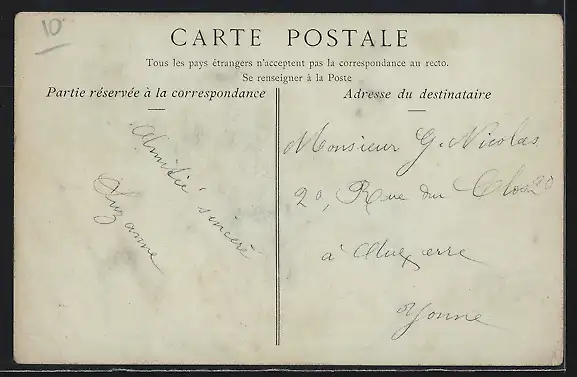 10
CARTE POSTALE
Tous les pays étrangers n'acceptent pas la correspondance au recto.
Se renseigner à la Poste
Partie réservée à la correspondance
Amitié sincère
Suzanne
Adresse du destinataire
Monsieur G. Nicolas
20, Rue du Clos 20
à Auxerre
Yonne